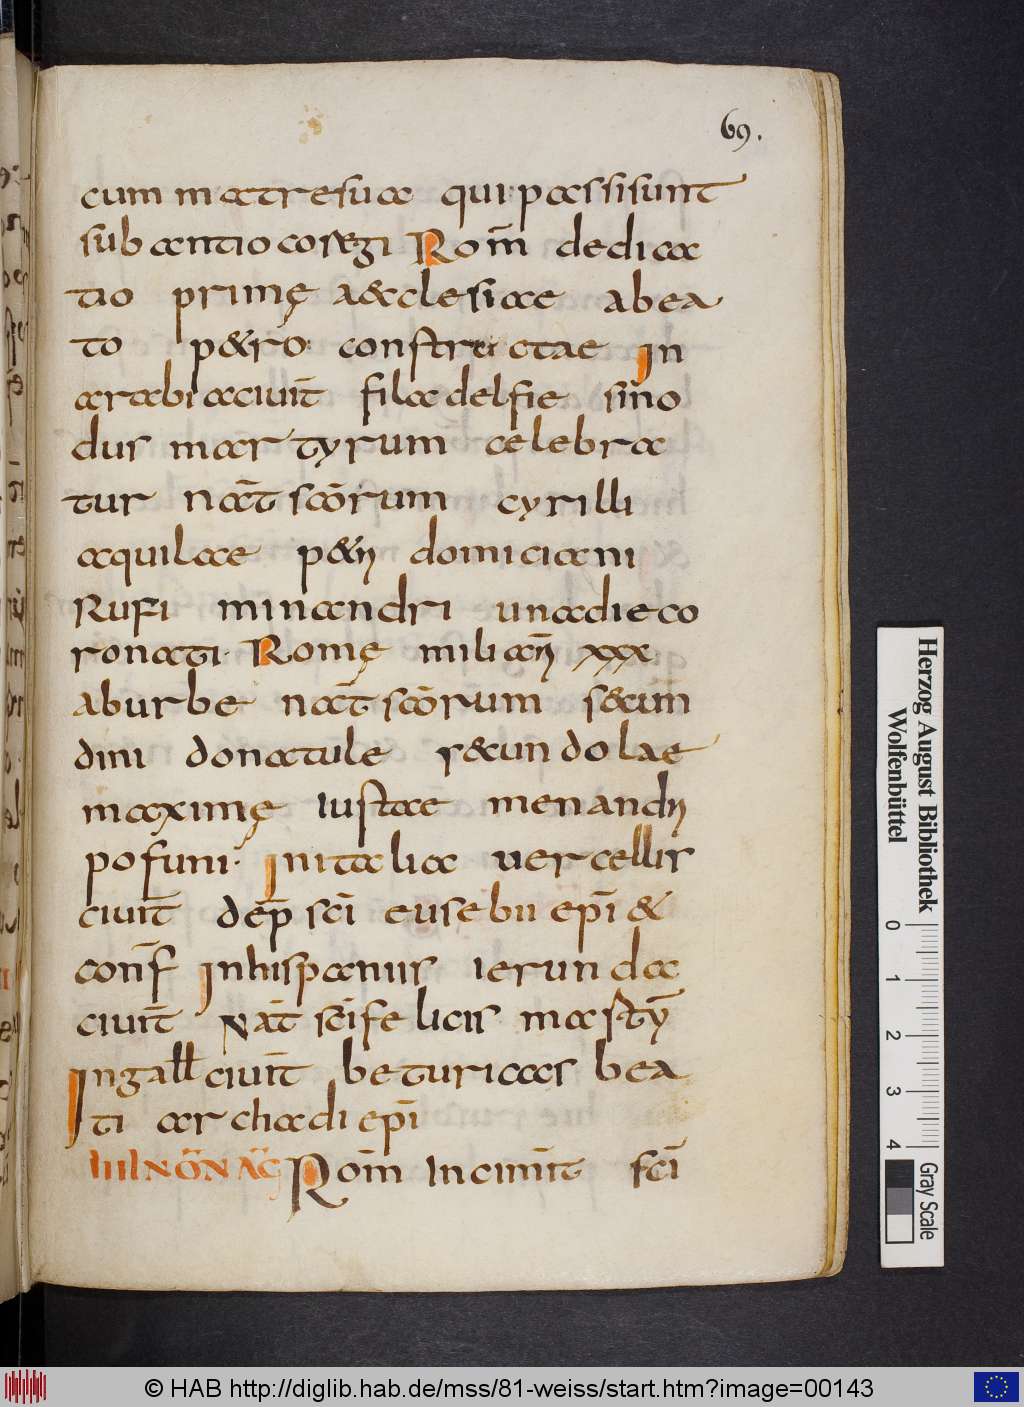 69.
cum matre sua qui passi sunt
sub antiocosegi Rom̄ dedica
tio primę a&cclesiae a bea
to p&ro constructae In
arabia ciuit̄ filadelfie sino
dus martyrum celebra
tur nat̄ scōrum cyrilli
aquilae p&ri domiciani
Rufi minandri una die co
ronati. Romę miliari xxx
ab urbe nat̄ scōrum s&cun
dini donatule r&cundolae
maximę iustae menandri
pofuni. In italia uercellis
ciuit̄ dep̄ scī eusebii epī &
conf̄ In hispaniis ierunda
ciuit̄ Nat̄ scī felicis mastȳ
In gall ciuit̄ beturicas bea
ti archadi epī
IIII NŌN AḠ Rom̄ In cimit̄ scī
Herzog August Bibliothek
Wolfenbüttel
0 1 2 3 4 Gray Scale
© HAB http://diglib.hab.de/mss/81-weiss/start.htm?image=00143